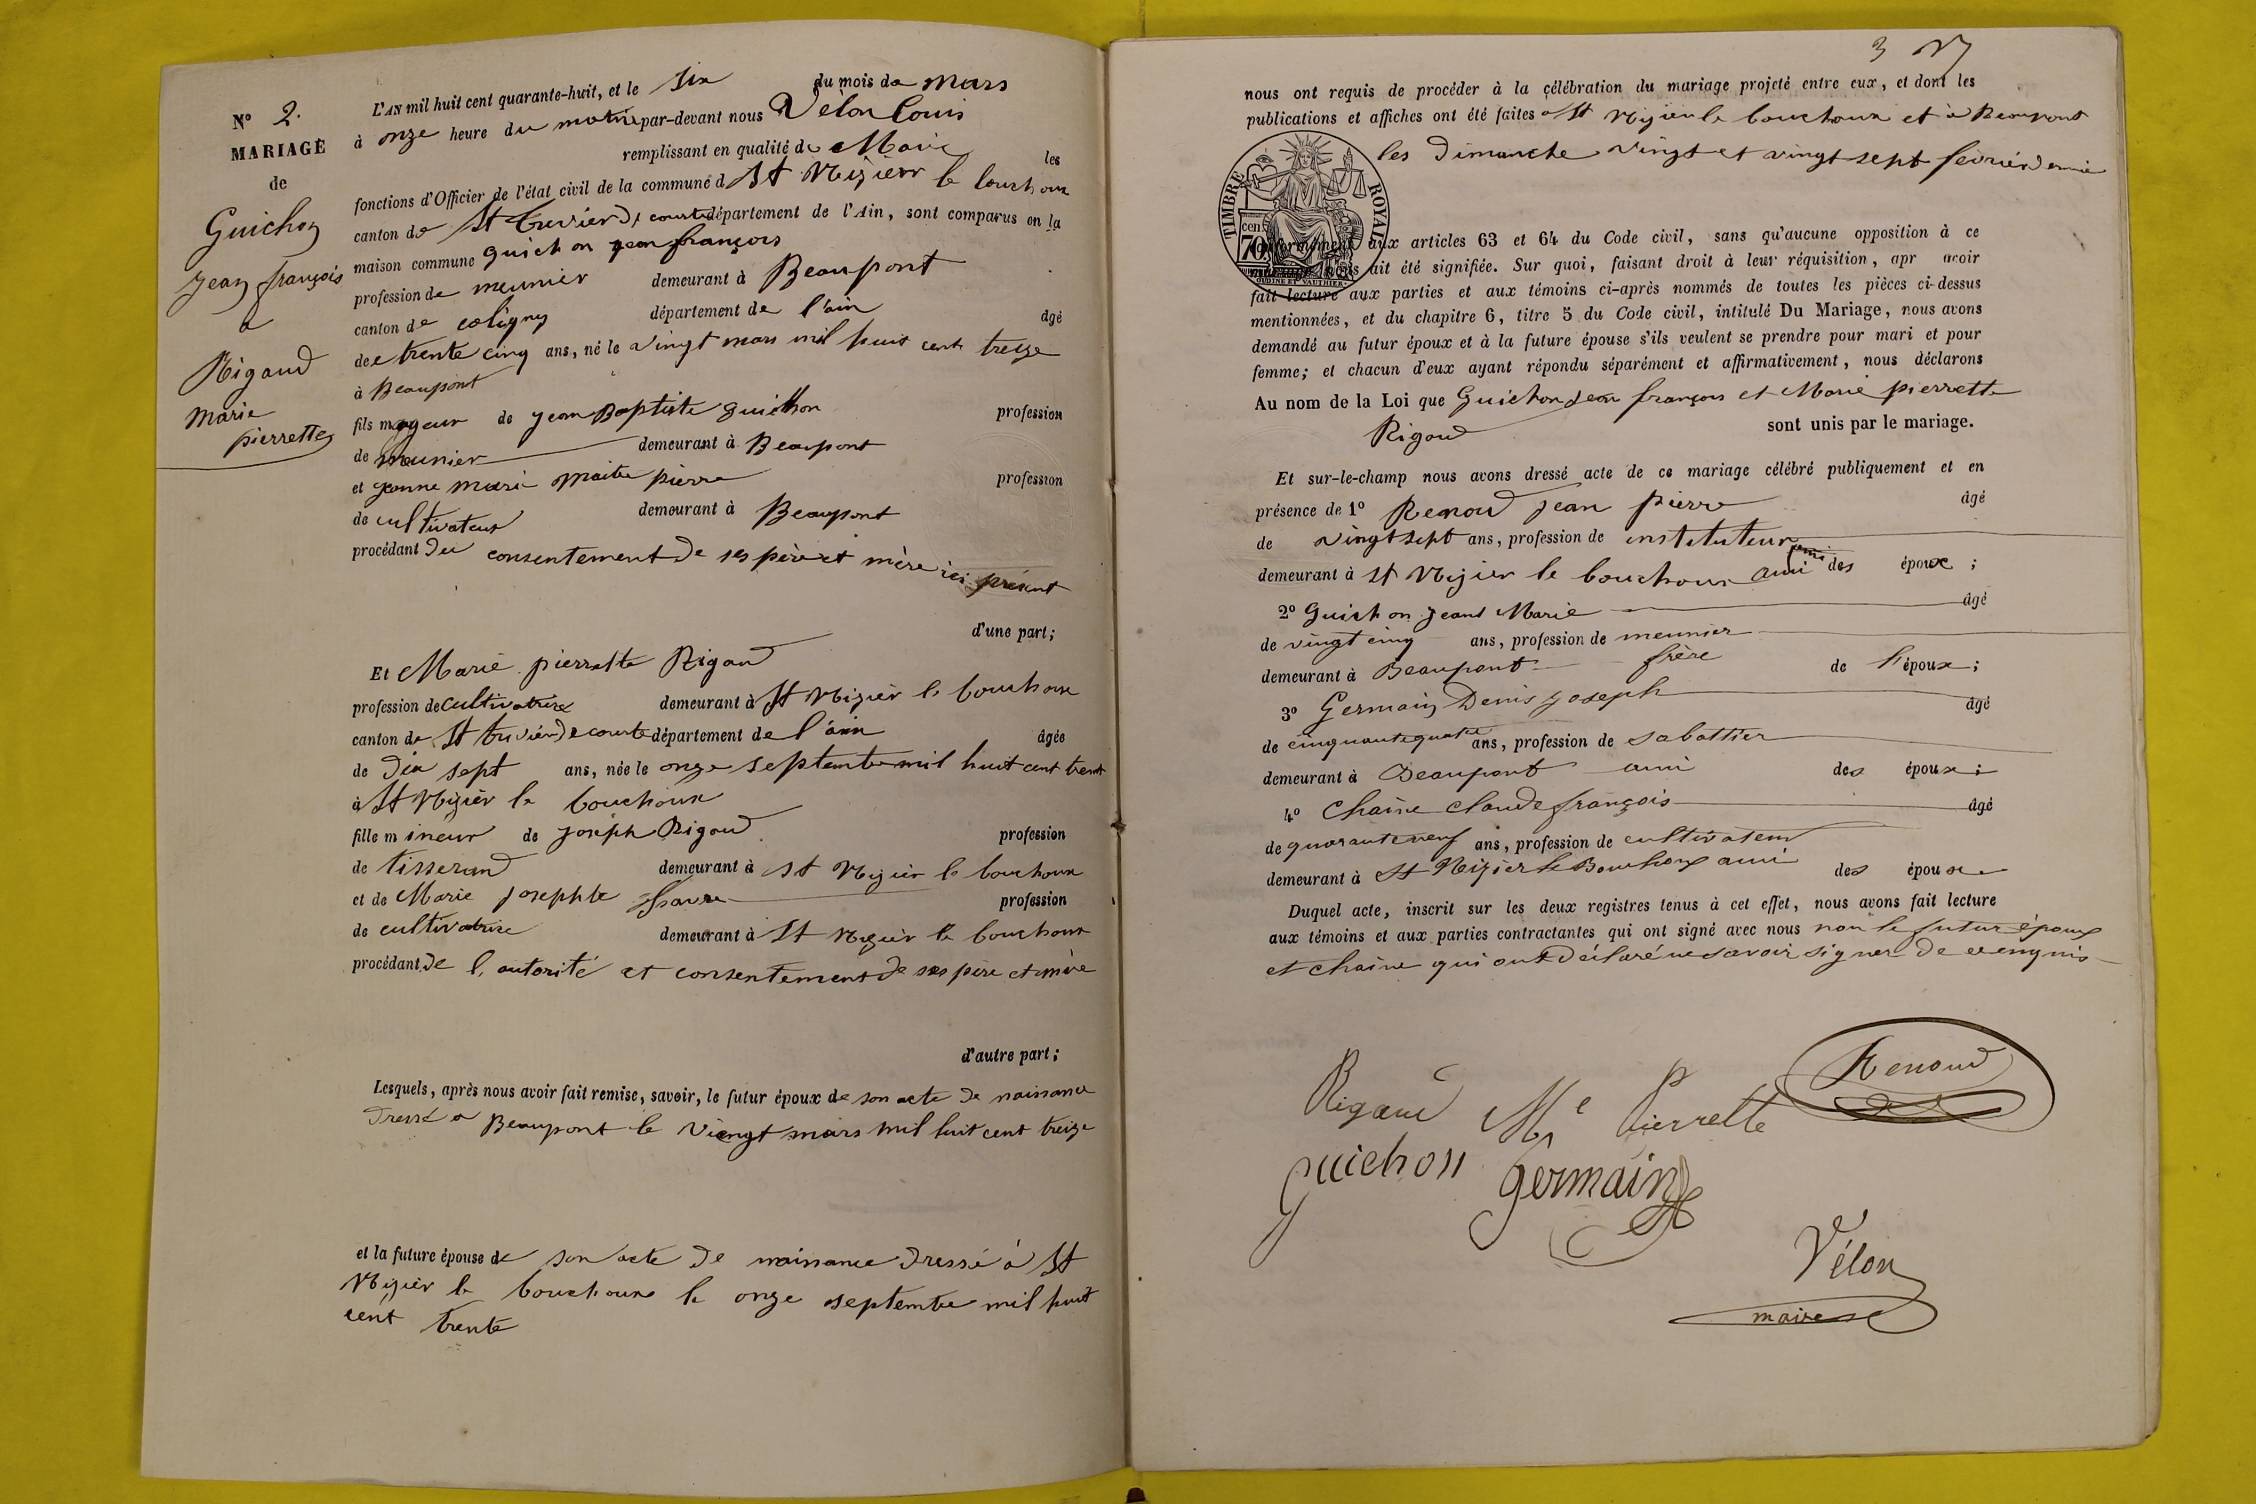 N° 2.
MARIAGE
de
Guichon
jean françois
a
Rigaud
marie
pierrette
L'AN mil huit cent quarante-huit, et le six du mois de mars
à onze heure du matin par-devant nous Vélon Louis
remplissant en qualité de Maire les
fonctions d'Officier de l'état civil de la commune d St Nizier le bouchoux
canton de St trivier de courte département de l'Ain, sont comparus en la
maison commune guichon jean françois
profession de meunier demeurant à Beaupont
canton de coligny département de l'ain âgé
de trente cinq ans, né le vingt mars mil huit cent treize
à Beaupont
fils majeur de jean Baptiste guichon profession
de meunier demeurant à Beaupont
et jeanne marie maitre pierre profession
de cultivateur demeurant à Beaupont
procédant du consentement de ses père et mère ici présent
d'une part;
Et Marie pierrette Rigaud
profession de cultivatrice demeurant à St Nizier le bouchoux
canton de St trivier de courte département de l'ain âgée
de dix sept ans, née le onze septembre mil huit cent trent
à St Nizier le bouchoux
fille mineur de joseph Rigaud profession
de tisserand demeurant à St Nizier le bouchoux
et de Marie josephte profession
de cultivatrice demeurant à St Nizier le bouchoux
procédant de l'autorité et consentement de ses père et mère
d'autre part;
Lesquels, après nous avoir fait remise, savoir, le futur époux de son acte de naissance
dressé a Beaupont le vingt mars mil huit cent treize
et la future épouse de son acte de naissance dressé à St
Nizier le bouchoux le onze septembre mil huit
cent trente
3
nous ont requis de procéder à la célébration du mariage projeté entre eux, et dont les
publications et affiches ont été faites a St Nizier le bouchoux et à Beaupont
les dimanche vingt et vingt sept février dernier
TIMBRE ROYAL
cen
70
OUDINÉ ET VAUTHIER
conformément aux articles 63 et 64 du Code civil, sans qu'aucune opposition à ce
nous ait été signifiée. Sur quoi, faisant droit à leur réquisition, apr avoir
fait lecture aux parties et aux témoins ci-après nommés de toutes les pièces ci-dessus
mentionnées, et du chapitre 6, titre 5 du Code civil, intitulé Du Mariage, nous avons
demandé au futur époux et à la future épouse s'ils veulent se prendre pour mari et pour
femme; et chacun d'eux ayant répondu séparément et affirmativement, nous déclarons
Au nom de la Loi que Guichon jean françois et Marie pierrette
Rigaud sont unis par le mariage.
Et sur-le-champ nous avons dressé acte de ce mariage célébré publiquement et en
présence de 1° Renoud jean pierre âgé
de vingt sept ans, profession de instituteur
demeurant à St Nizier le bouchoux ami des époux;
2° Guichon jeant Marie âgé
de vingt cinq ans, profession de meunier
demeurant à Beaupont frère de l'époux;
3° Germain Denis joseph âgé
de cinquante quatre ans, profession de sabottier
demeurant à Beaupont ami des époux;
4° Chaine claude françois âgé
de quarante neuf ans, profession de cultivateur
demeurant à St Nizier le Bouchoux ami des époux
Duquel acte, inscrit sur les deux registres tenus à cet effet, nous avons fait lecture
aux témoins et aux parties contractantes qui ont signé avec nous non le futur époux
et chaine qui ont déclaré ne savoir signer de ce enquis
Rigaud Me Pierrette Renoud
guichon germain
Vélon
maire